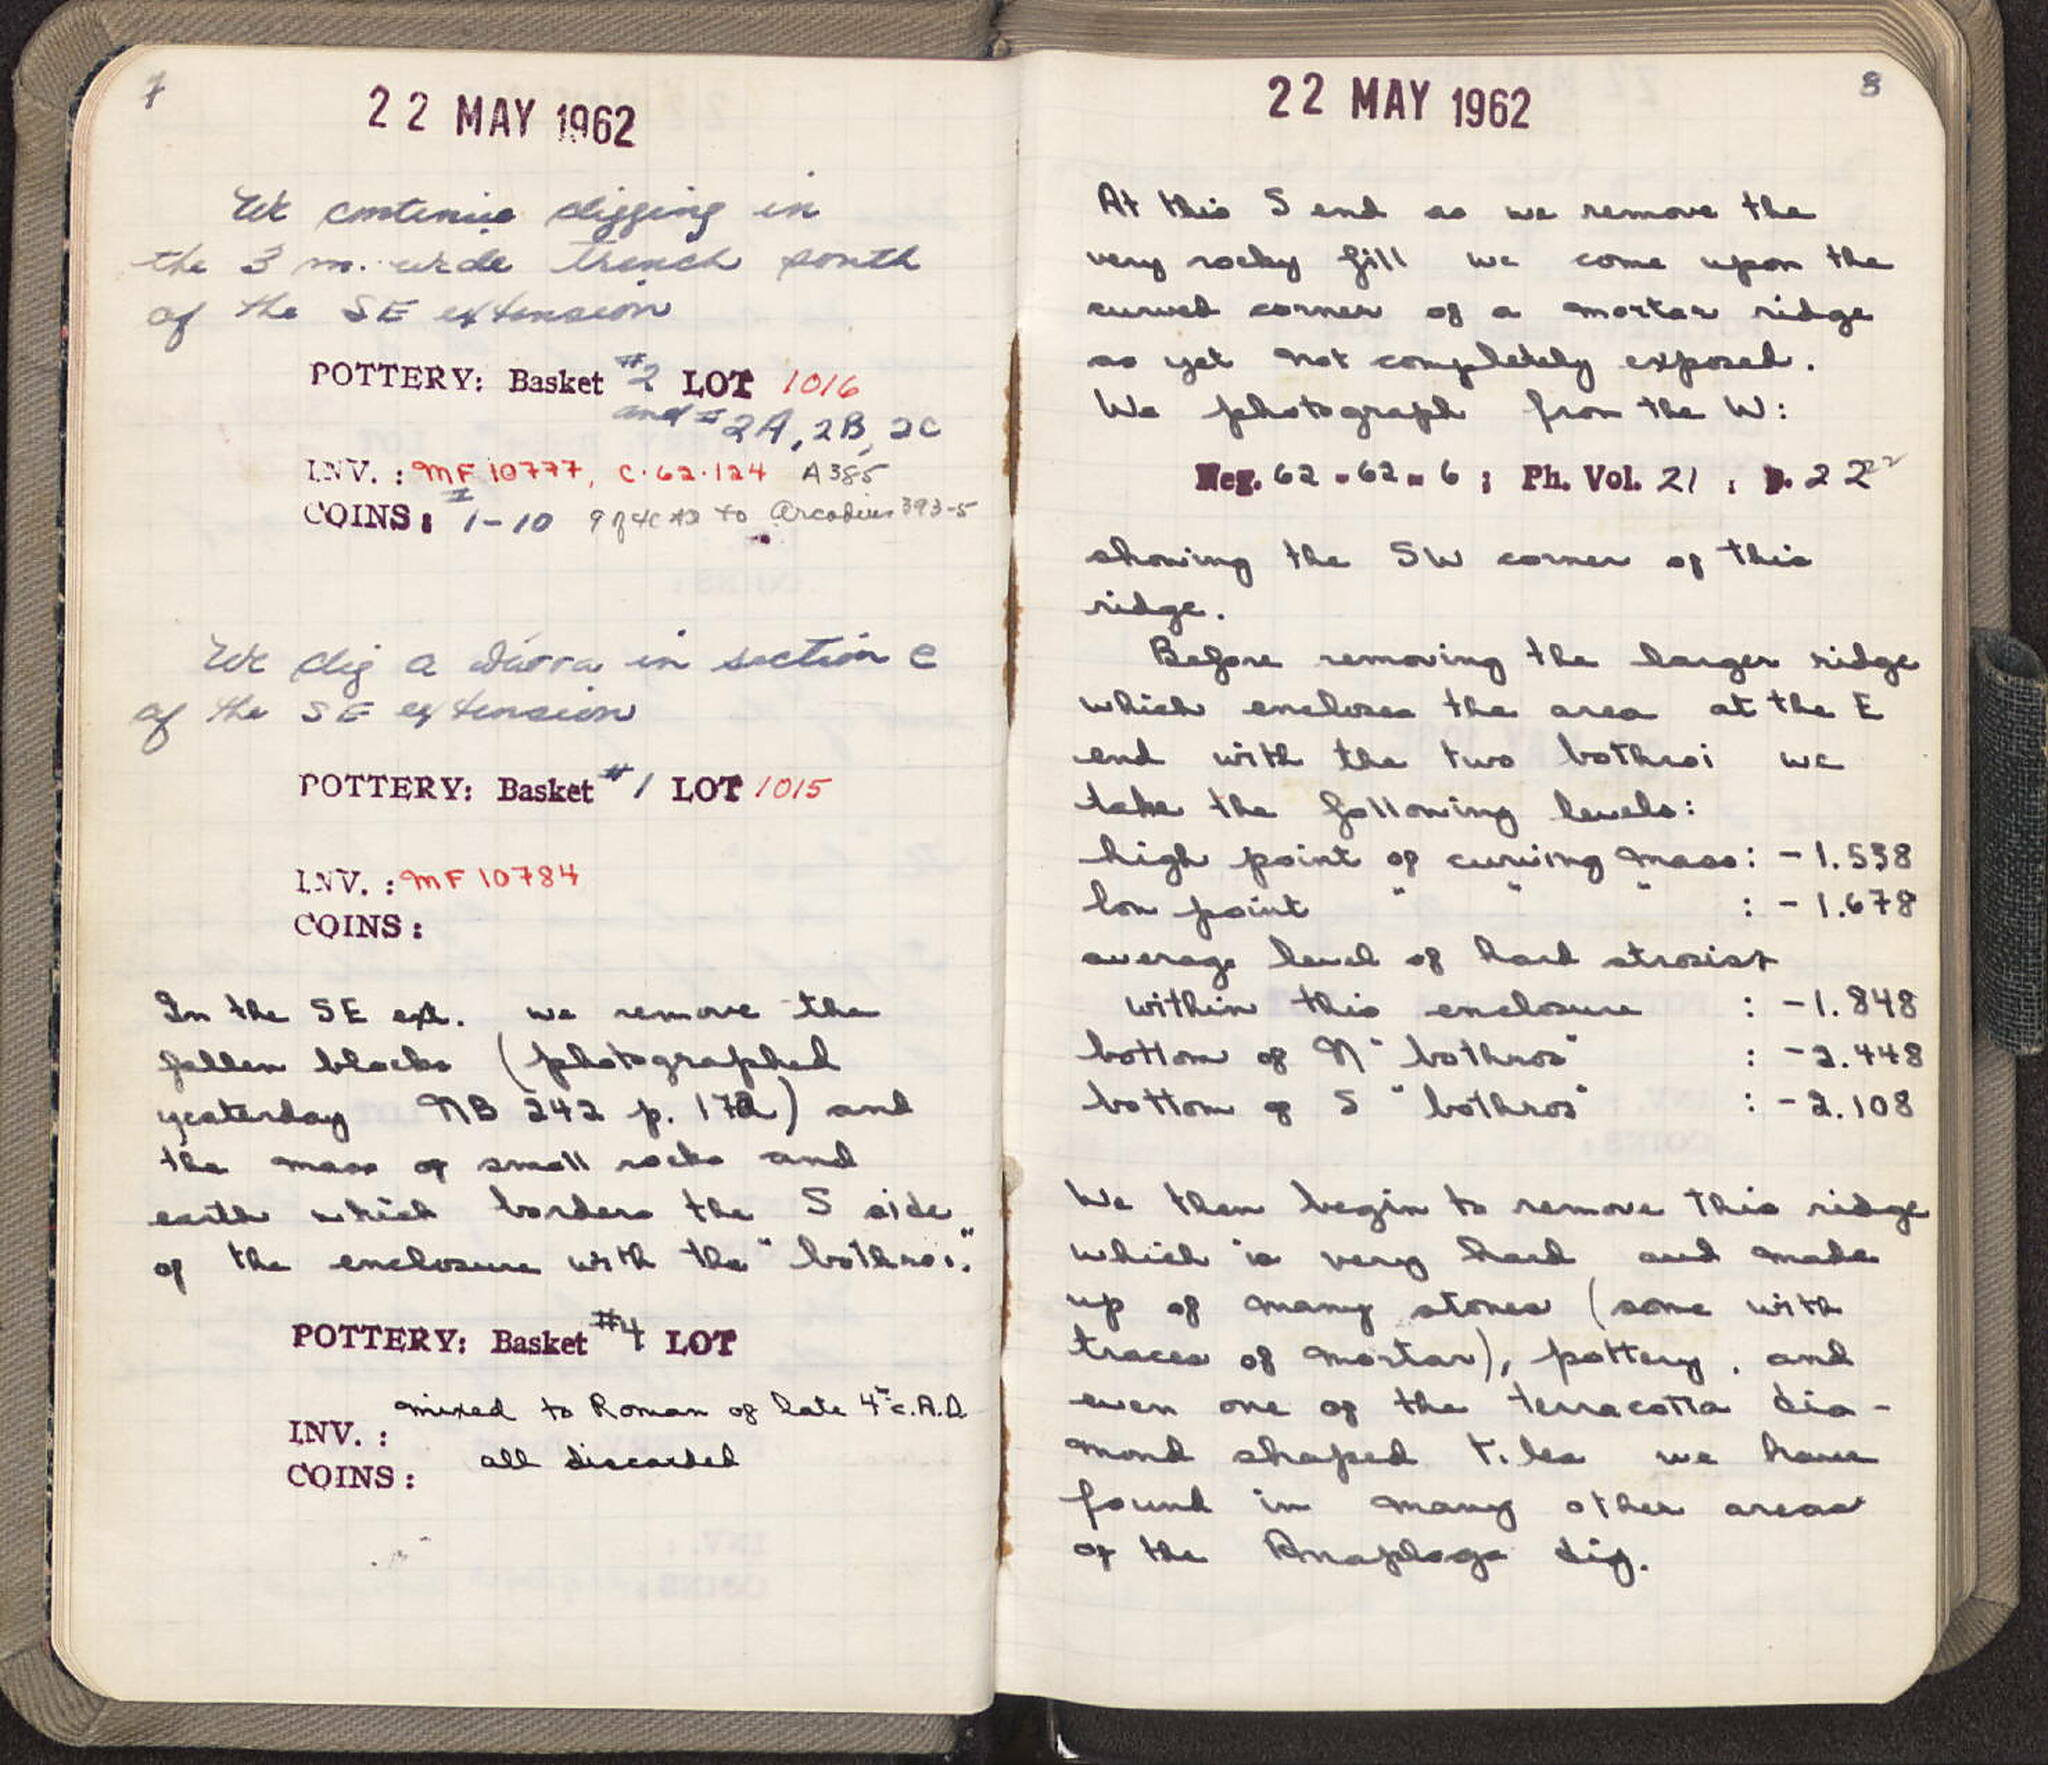 7
22 MAY 1962
We continue digging in
the 3 m. wide trench south
of the SE extension
POTTERY: Basket #2 LOT 1016
and # 2A, 2B, 2C
INV. : MF 10777, C·62·124 A385
COINS: # 1-10 to Arcadius 393-5
We dig a in section C
of the SE extension
POTTERY: Basket #1 LOT 1015
INV. : MF 10784
COINS:
In the SE ext. we remove the
fallen blocks (photographed
yesterday NB 242 p. 172) and
the mass of small rocks and
earth which borders the S side
of the enclosure with the "bothroi."
POTTERY: Basket #4 LOT
mixed to Roman of late 4th c. A.D.
INV. :
all discarded
COINS:
8
22 MAY 1962
At this S end as we remove the
very rocky fill we come upon the
curved corner of a mortar ridge
as yet not completely exposed.
We photograph from the W:
Neg. 62-62-6 ; Ph. Vol. 21 , p. 22
showing the SW corner of this
ridge.
Before removing the larger ridge
which encloses the area at the E
end with the two bothroi we
take the following levels:
high point of curving mass: -1.538
low point " " " : -1.678
average level of hard strosis
within this enclosure : -1.848
bottom of N "bothros" : -2.448
bottom of S "bothros" : -2.108
We then begin to remove this ridge
which is very hard and made
up of many stones (some with
traces of mortar), pottery, and
even one of the terracotta dia-
mond shaped tiles we have
found in many other areas
of the Anaploga dig.